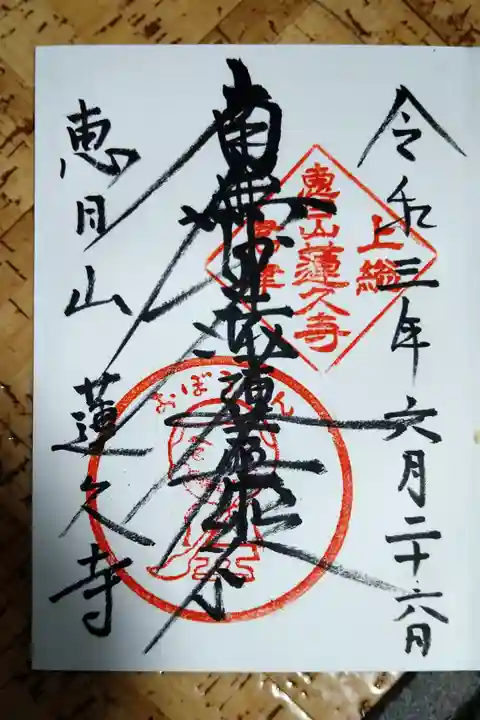 令和三年六月二十六日
南無妙法蓮華経
恵日山 蓮久寺
上総
恵日山蓮久寺
君津
おぼ
ん